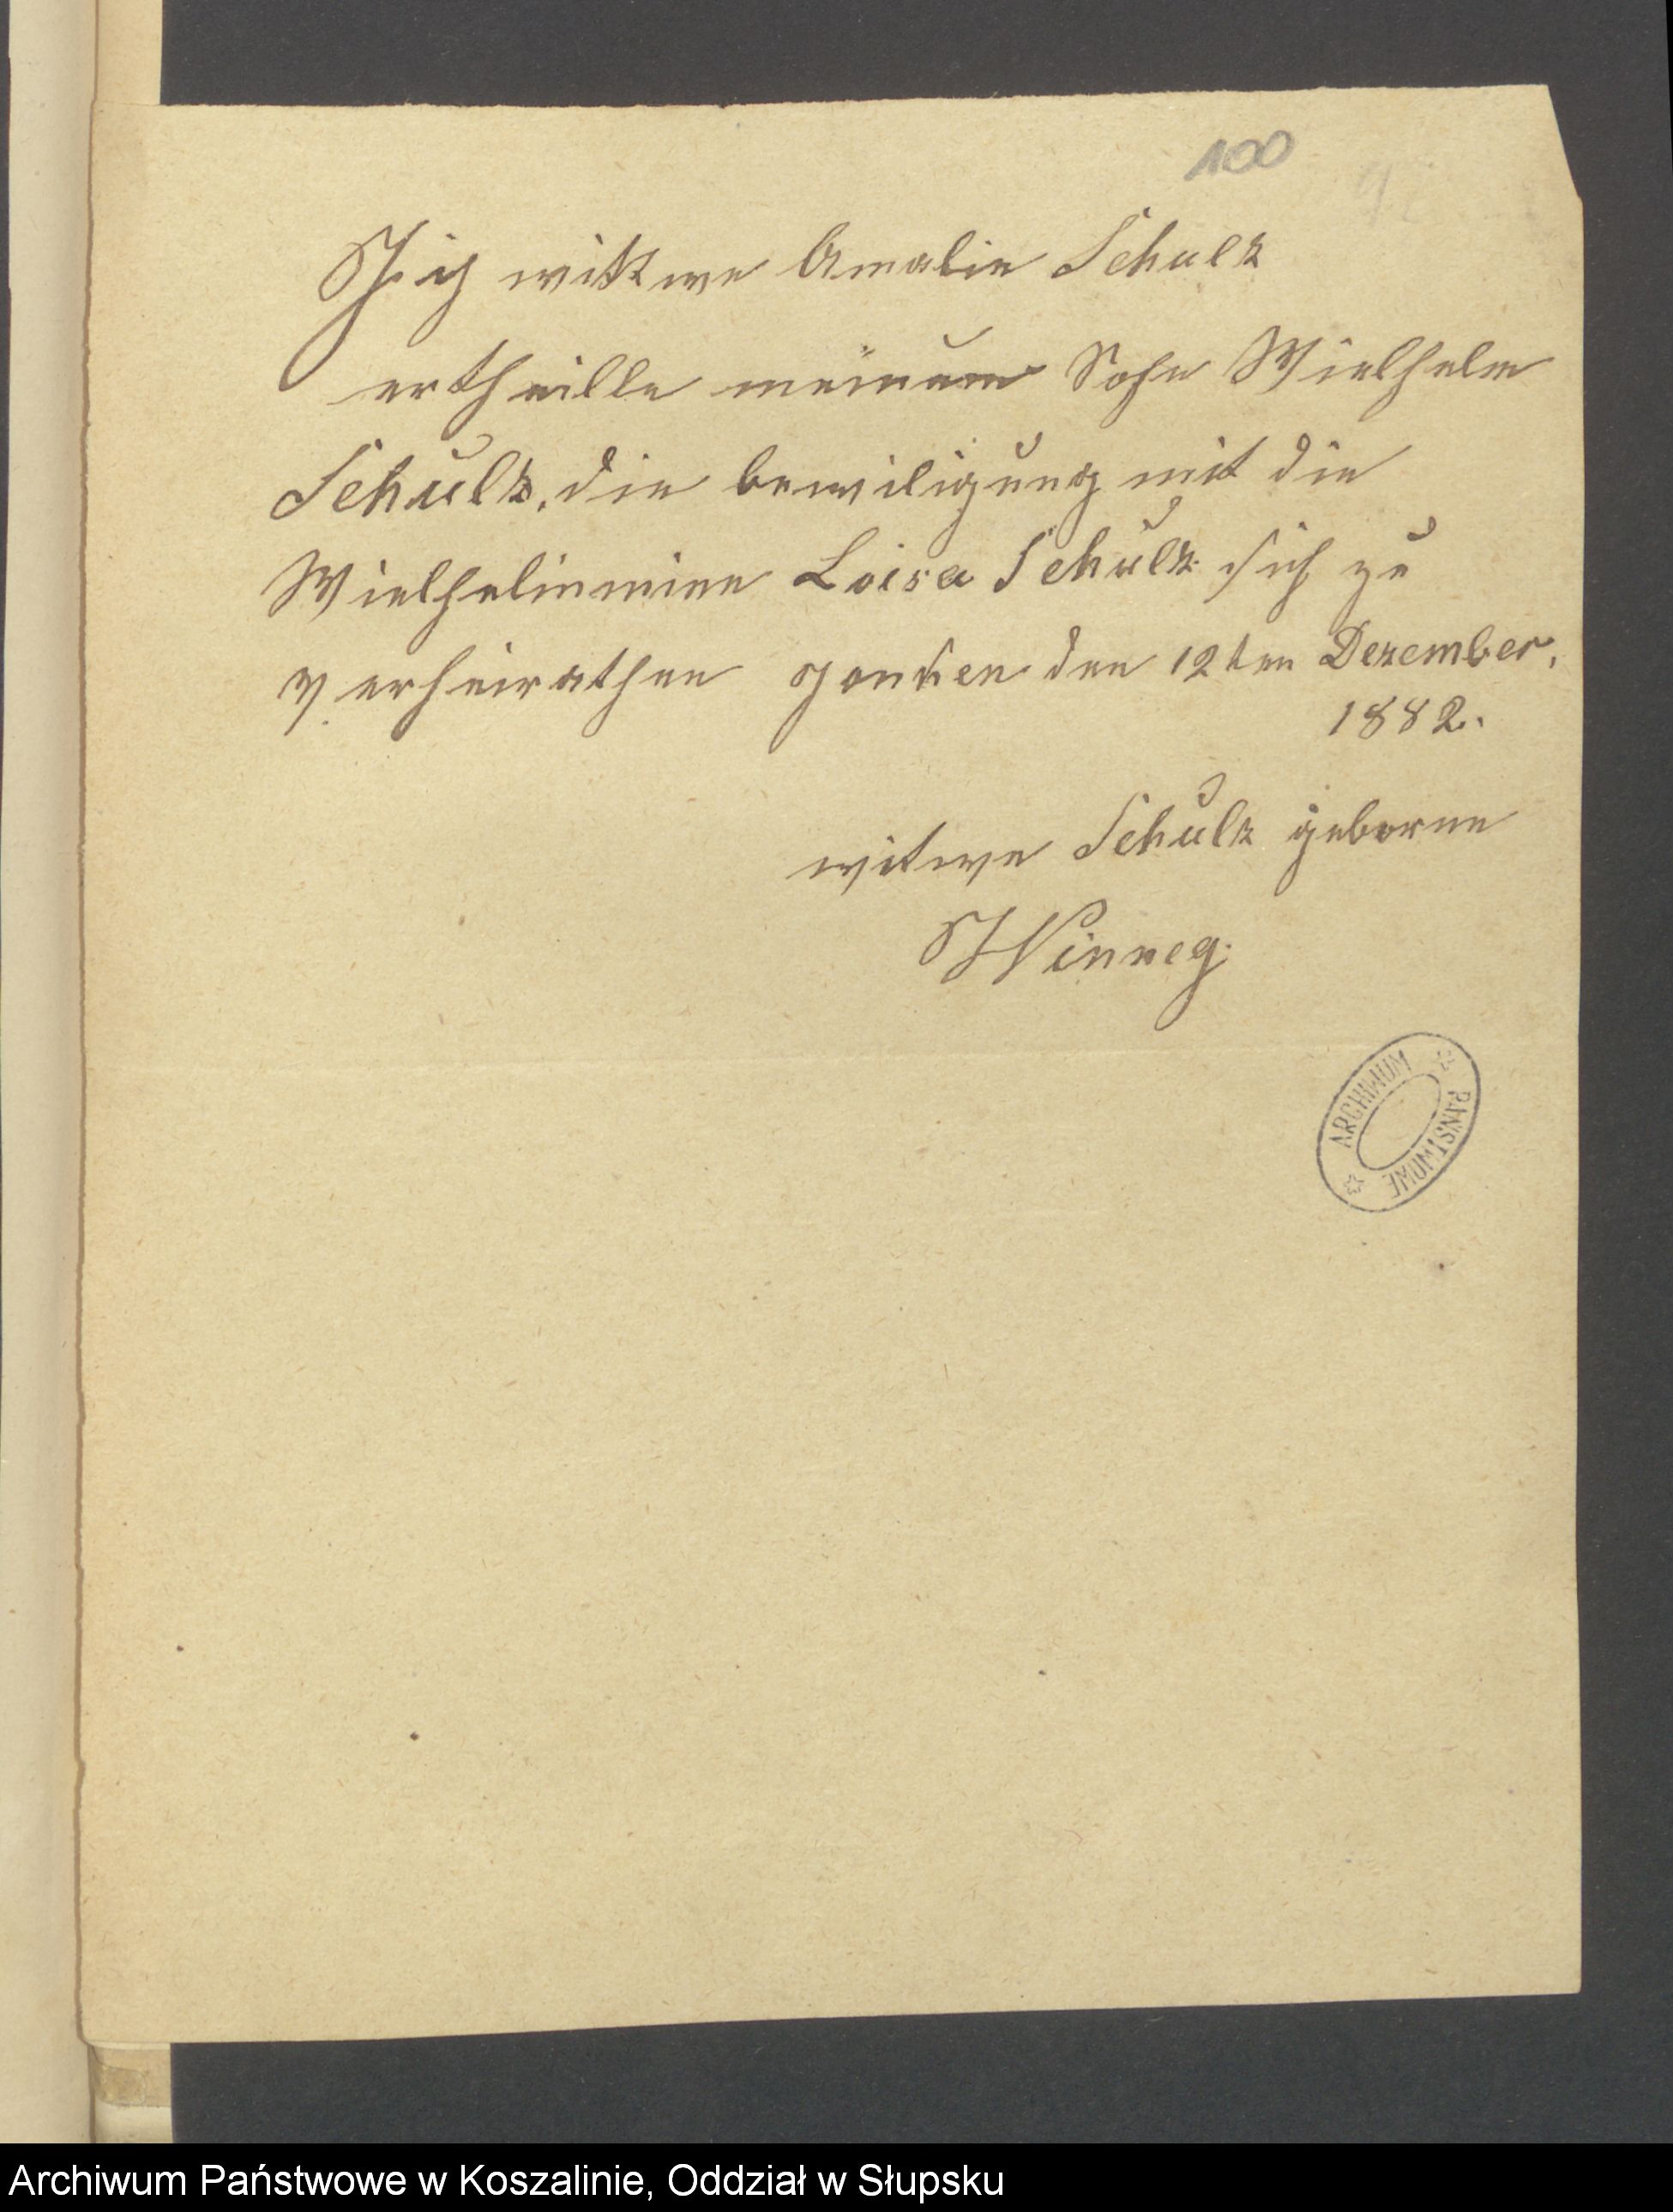 100
Ich wittwe Amalie Schulz
ertheille meinem Sohn Wielhelm
Schulz, die bewiligung mit die
Wielhelinmine Loisa Schulz sich zu
verheirathen den 12ten Dezember.
1882.
witwe Schulz geborne
Winneg.
ARCHIWUM PAŃSTWOWE
Archiwum Państwowe w Koszalinie, Oddział w Słupsku